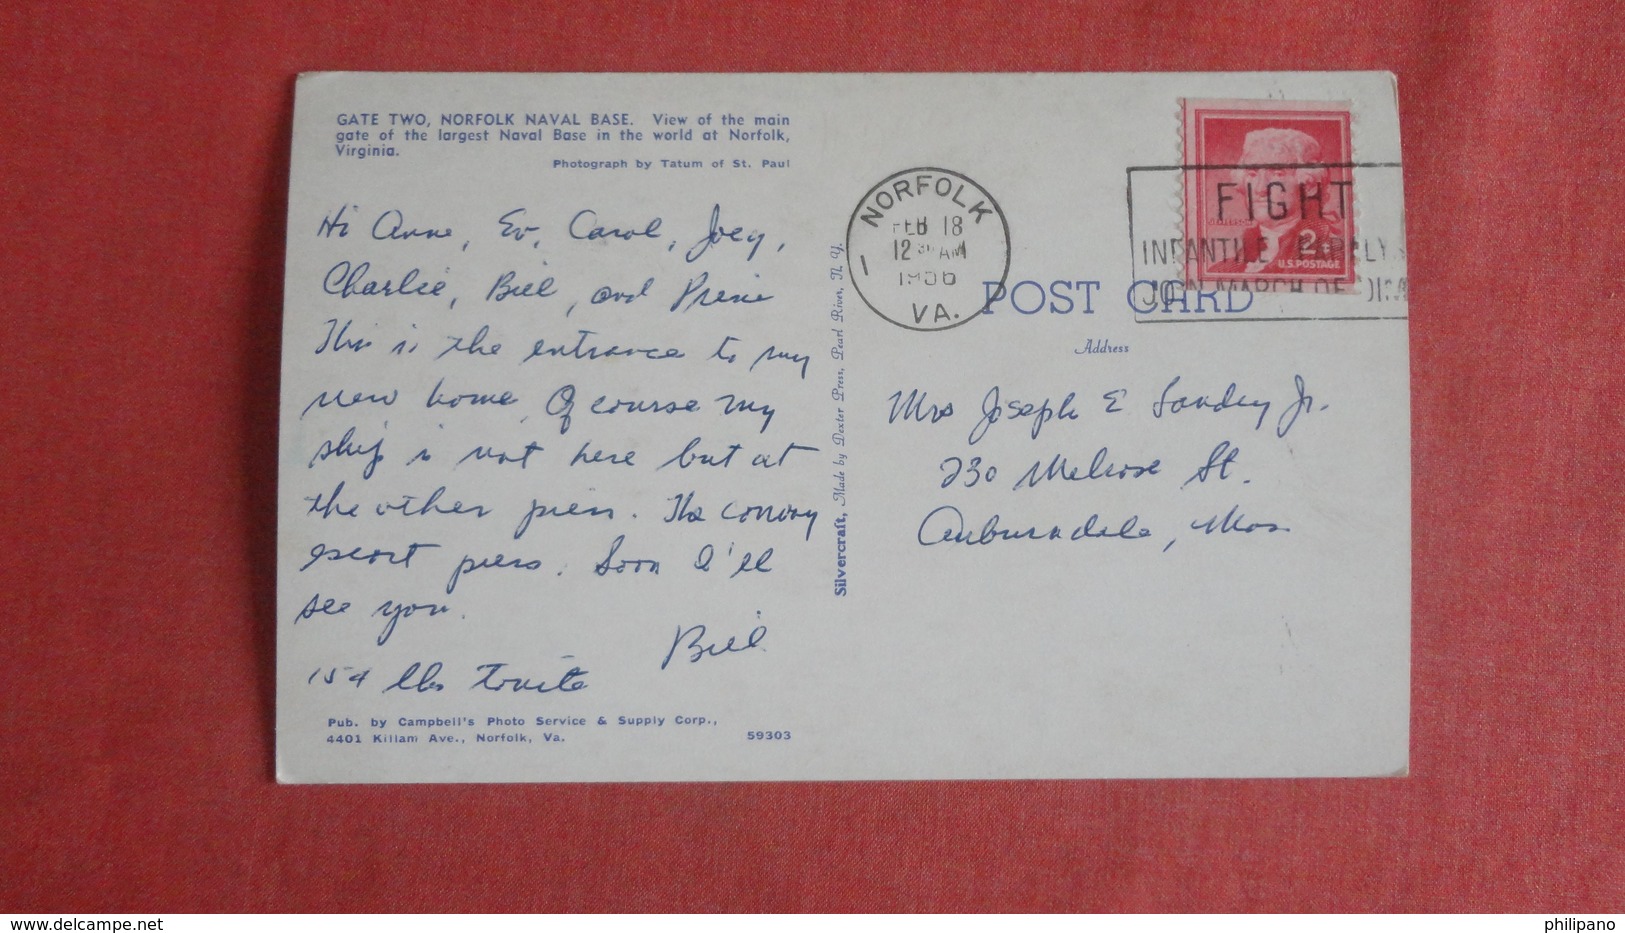 GATE TWO, NORFOLK NAVAL BASE. View of the main
gate of the largest Naval Base in the world at Norfolk,
Virginia.
Photograph by Tatum of St. Paul
Hi Anne, Ev, Carol, Joey,
Charlie, Bill, and
This is the entrance to my
new home. Of course my
ship is not here but at
the other piers. The convoy
escort piers. Soon I'll
see you.
Bill
154 lbs tonite
Pub. by Campbell's Photo Service & Supply Corp.,
4401 Killam Ave., Norfolk, Va.
59303
Silvercraft, Made by Dexter Press, Pearl River, N. Y.
NORFOLK
FEB 18
12 30 AM
1956
1
VA.
FIGHT
INFANTILE PARALYS
JOIN MARCH OF DIM
2¢
U.S. POSTAGE
POST CARD
Address
Mrs Joseph E Jr.
230 Melrose St.
Auburndale, Mass
www.delcampe.net
philipano